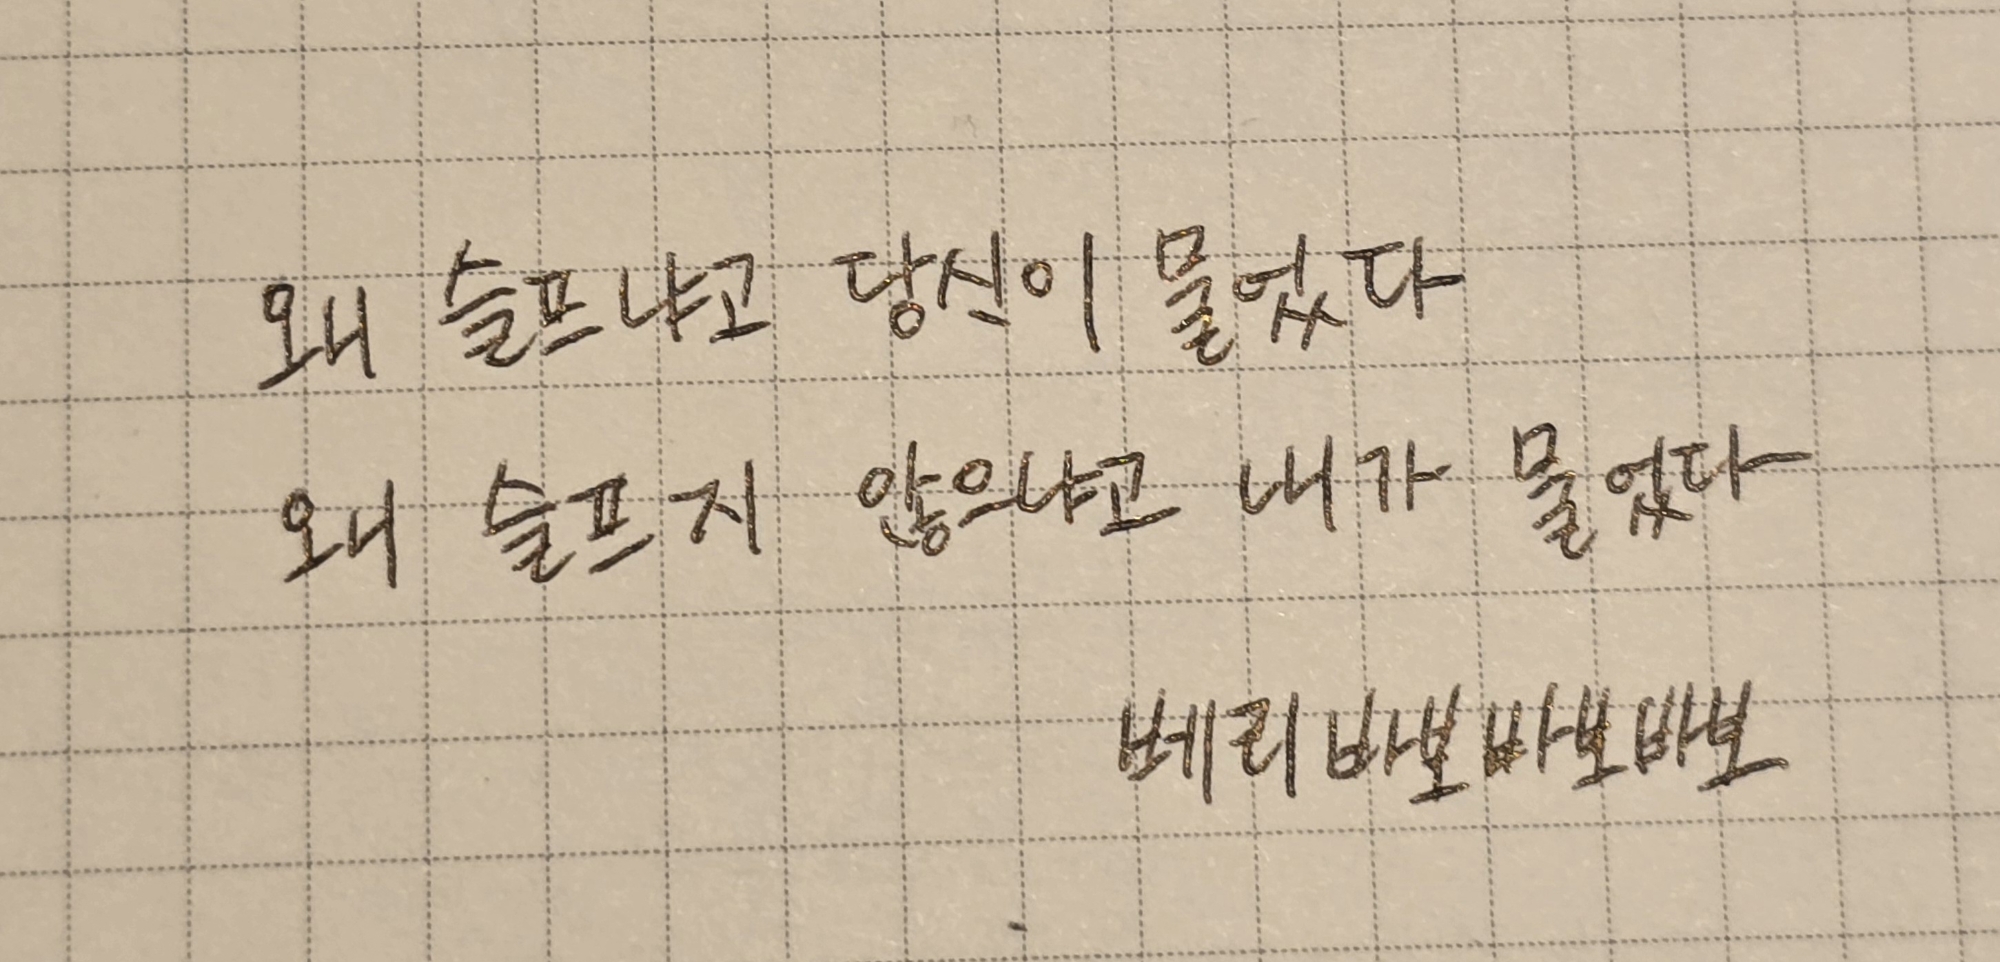 왜 슬프냐고 당신이 물었다
왜 슬프지 않으냐고 내가 물었다
베리 바보바보바보